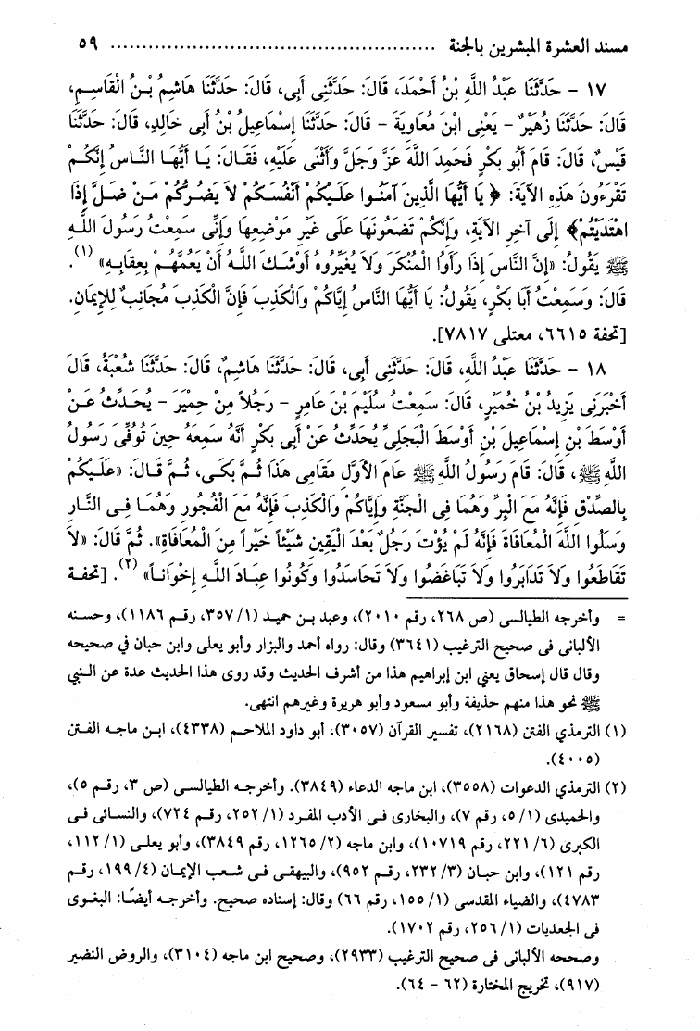 مسند العشرة المبشرين بالجنة ................................................ ٥٩
١٧ - حَدَّثَنَا عَبْدُ اللَّهِ بْنُ أَحْمَدَ، قَالَ: حَدَّثَنِى أَبِى، قَالَ: حَدَّثَنَا هَاشِمُ بْنُ الْقَاسِمِ،
قَالَ: حَدَّثَنَا زُهَيْرٌ - يَعْنِى ابْنَ مُعَاوِيَةَ - قَالَ: حَدَّثَنَا إِسْمَاعِيلُ بْنُ أَبِى خَالِدٍ، قَالَ: حَدَّثَنَا
قَيْسٌ، قَالَ: قَامَ أَبُو بَكْرٍ فَحَمِدَ اللَّهَ عَزَّ وَجَلَّ وَأَثْنَى عَلَيْهِ، فَقَالَ: يَا أَيُّهَا النَّاسُ إِنَّكُمْ
تَقْرَءُونَ هَذِهِ الآيَةَ: ﴿يَا أَيُّهَا الَّذِينَ آمَنُوا عَلَيْكُمْ أَنْفُسَكُمْ لاَ يَضُرُّكُمْ مَنْ ضَلَّ إِذَا
اهْتَدَيْتُمْ﴾ إِلَى آخِرِ الآيَةِ، وَإِنَّكُمْ تَضَعُونَهَا عَلَى غَيْرِ مَوْضِعِهَا وَإِنِّى سَمِعْتُ رَسُولَ اللَّهِ
ﷺ يَقُولُ: «إِنَّ النَّاسَ إِذَا رَأَوُا الْمُنْكَرَ وَلاَ يُغَيِّرُوهُ أَوْشَكَ اللَّهُ أَنْ يَعُمَّهُمْ بِعِقَابِهِ» (١).
قَالَ: وَسَمِعْتُ أَبَا بَكْرٍ، يَقُولُ: يَا أَيُّهَا النَّاسُ إِيَّاكُمْ وَالْكَذِبَ فَإِنَّ الْكَذِبَ مُجَانِبٌ لِلإِيمَانِ.
[تحفة ٦٦١٥، معتلى ٧٨١٧].
١٨ - حَدَّثَنَا عَبْدُ اللَّهِ، قَالَ: حَدَّثَنِى أَبِى، قَالَ: حَدَّثَنَا هَاشِمٌ، قَالَ: حَدَّثَنَا شُعْبَةُ، قَالَ
أَخْبَرَنِى يَزِيدُ بْنُ خُمَيْرٍ، قَالَ: سَمِعْتُ سُلَيْمَ بْنَ عَامِرٍ - رَجُلاً مِنْ حِمْيَرَ - يُحَدِّثُ عَنْ
أَوْسَطَ بْنِ إِسْمَاعِيلَ بْنِ أَوْسَطَ الْبَجَلِىِّ يُحَدِّثُ عَنْ أَبِى بَكْرٍ أَنَّهُ سَمِعَهُ حِينَ تُوُفِّىَ رَسُولُ
اللَّهِ ﷺ، قَالَ: قَامَ رَسُولُ اللَّهِ ﷺ عَامَ الأَوَّلِ مَقَامِى هَذَا ثُمَّ بَكَى، ثُمَّ قَالَ: «عَلَيْكُمْ
بِالصِّدْقِ فَإِنَّهُ مَعَ الْبِرِّ وَهُمَا فِى الْجَنَّةِ وَإِيَّاكُمْ وَالْكَذِبَ فَإِنَّهُ مَعَ الْفُجُورِ وَهُمَا فِى النَّارِ
وَسَلُوا اللَّهَ الْمُعَافَاةَ فَإِنَّهُ لَمْ يُؤْتَ رَجُلٌ بَعْدَ الْيَقِينِ شَيْئاً خَيْراً مِنَ الْمُعَافَاةِ». ثُمَّ قَالَ: «لاَ
تَقَاطَعُوا وَلاَ تَدَابَرُوا وَلاَ تَبَاغَضُوا وَلاَ تَحَاسَدُوا وَكُونُوا عِبَادَ اللَّهِ إِخْوَاناً» (٢). [تحفة
= وأخرجه الطيالسى (ص ٢٦٨، رقم ٢٠١٠)، وعبد بن حميد (١/ ٣٥٧، رقم ١١٨٦)، وحسنه
الألبانى فى صحيح الترغيب (٣٦٤١) وقال: رواه أحمد والبزار وأبو يعلى وابن حبان في صحيحه
وقال قال إسحاق يعني ابن إبراهيم هذا من أشرف الحديث وقد روى هذا الحديث عدة عن النبي
ﷺ نحو هذا منهم حذيفة وأبو مسعود وأبو هريرة وغيرهم انتهى.
(١) الترمذي الفتن (٢١٦٨)، تفسير القرآن (٣٠٥٧). أبو داود الملاحم (٤٣٣٨)، ابن ماجه الفتن
(٤٠٠٥).
(٢) الترمذي الدعوات (٣٥٥٨)، ابن ماجه الدعاء (٣٨٤٩). وأخرجه الطيالسى (ص ٣، رقم ٥)،
والحميدى (١/ ٥، رقم ٧)، والبخارى فى الأدب المفرد (١/ ٢٥٢، رقم ٧٢٤)، والنسائى فى
الكبرى (٦/ ٢٢١، رقم ١٠٧١٩)، وابن ماجه (٢/ ١٢٦٥، رقم ٣٨٤٩)، وأبو يعلى (١/ ١١٢،
رقم ١٢١)، وابن حبان (٣/ ٢٣٢، رقم ٩٥٢)، والبيهقى فى شعب الإيمان (٤/ ١٩٩، رقم
٤٧٨٣)، والضياء المقدسى (١/ ١٥٥، رقم ٦٦) وقال: إسناده صحيح. وأخرجه أيضًا: البغوى
فى الجعديات (١/ ٢٥٦، رقم ١٧٠٢).
وصححه الألبانى فى صحيح الترغيب (٢٩٣٣)، وصحيح ابن ماجه (٣١٠٤)، والروض النضير
(٩١٧)، تخريج المختارة (٦٢ - ٦٤).